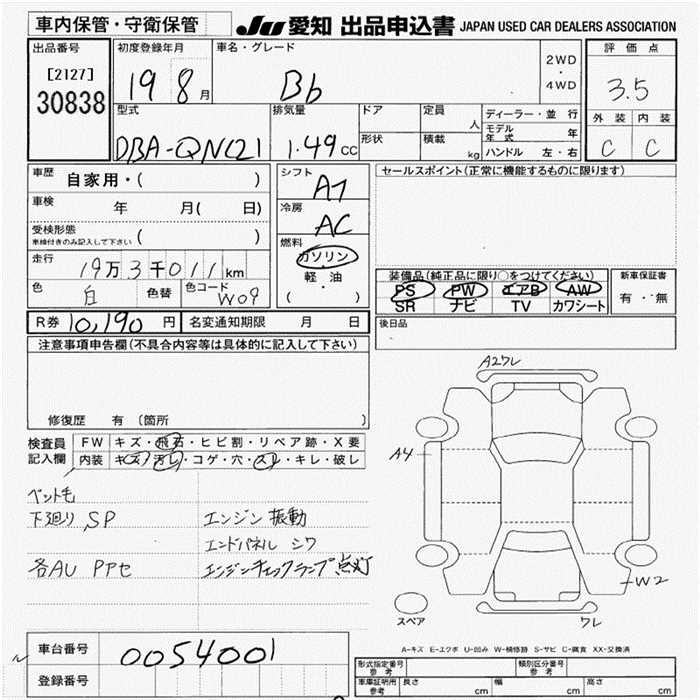 車内保管・守衛保管
JU 愛知 出品申込書 JAPAN USED CAR DEALERS ASSOCIATION
出品番号
[2127]
30838
初度登録年月
19 8 月
車名・グレード
Bb
2WD
・
4WD
評価点
3.5
外装 内装
C C
型式
DBA-QNC21
排気量
1.49 CC
ドア
形状
定員
人
積載
kg
ディーラー・並行
モデル年式 年
ハンドル 左・右
車歴
自家用・( )
車検
年 月( 日)
受検形態
車検付きのみ記入して下さい ( )
走行
19万3千011km
色
白 色替
色コード
W09
シフト
AT
冷房
AC
燃料
ガソリン
・
軽・油
( )
セールスポイント(正常に機能するものに限ります)
装備品(純正品に限り○をつけてください)
PS PW エアB AW
SR ナビ TV カワシート
新車保証書
有・無
後日品
R券 10,190 円
名変通知期限 月 日
注意事項申告欄(不具合内容等は具体的に記入して下さい)
修復歴 有 〔箇所 〕
検査員
記入欄
FW キズ・飛石・ヒビ割・リペア跡・X要
内装 キズ・汚レ・コゲ・穴・スレ・キレ・破レ
ペット毛
下廻り SP
エンジン振動
エンドパネル シワ
各AU PPセ
エンジンチェックランプ点灯
A2ワレ
A4
W2
ワレ
スペア
A-キズ E-エクボ U-凹み W-補修跡 S-サビ C-腐食 XX-交換済
車台番号
0054001
登録番号
形式指定番号
参考
類別区分番号
参考
車庫証明用
参考
長さ cm
幅 cm
高さ cm